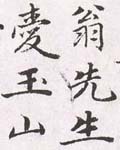 翁先生
憂玉山